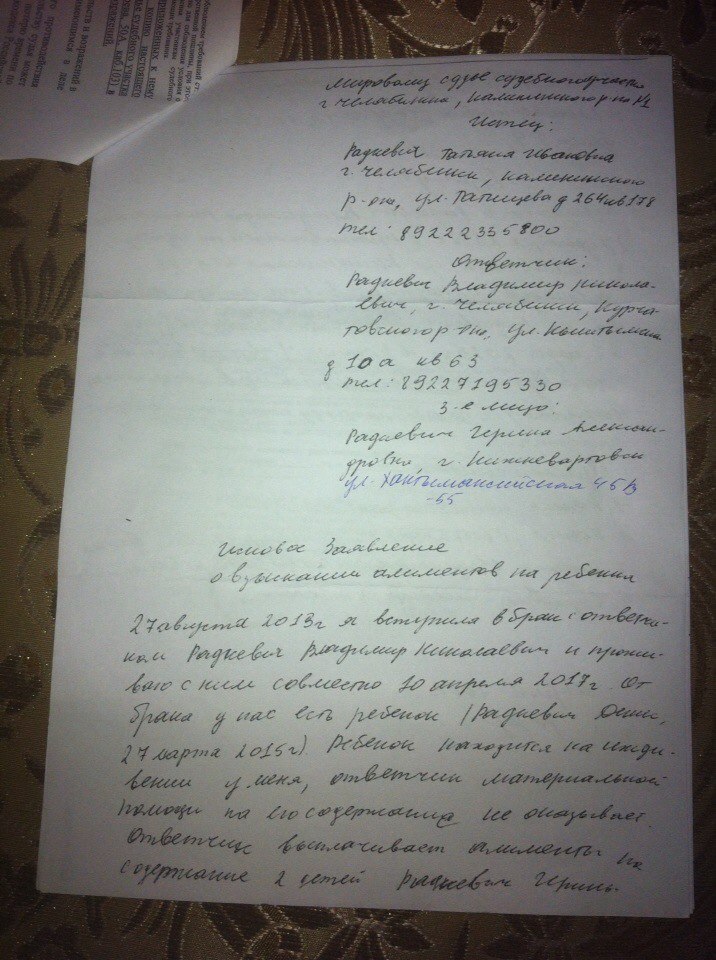 обоснования требований ст.
копию настоящего
приложенных к нему
50А, каб.103) в
Мировому судье судебного участка
г. Челябинска, Калининского р-на №1
Истец:
Радкевич Татьяна Ивановна
г. Челябинск, Калининского
р-она, ул. Татищева д 264 кв 178
тел: 89222335800
Ответчик:
Радкевич Владимир Никола-
евич, г. Челябинск, Курча-
товского р-она, ул.
д 10а кв 63
тел: 89227195330
3-е лицо:
Радкевич Герина Алексан-
дровна, г. Нижневартовск
ул. Хантымансийская 45/3
-55
Исковое Заявление
о взыскании алиментов на ребенка
27 августа 2013г я вступила в брак с ответчи-
ком Радкевич Владимир Николаевич и прожи-
ваю с ним совместно 10 апреля 2017г. От
брака у нас есть ребенок (Радкевич
27 марта 2015г). Ребенок находится на ижди-
вении у меня, ответчик материальной
помощи на его содержание не оказывает.
Ответчик выплачивает алименты на
содержание 2 детей Радкевич Герине